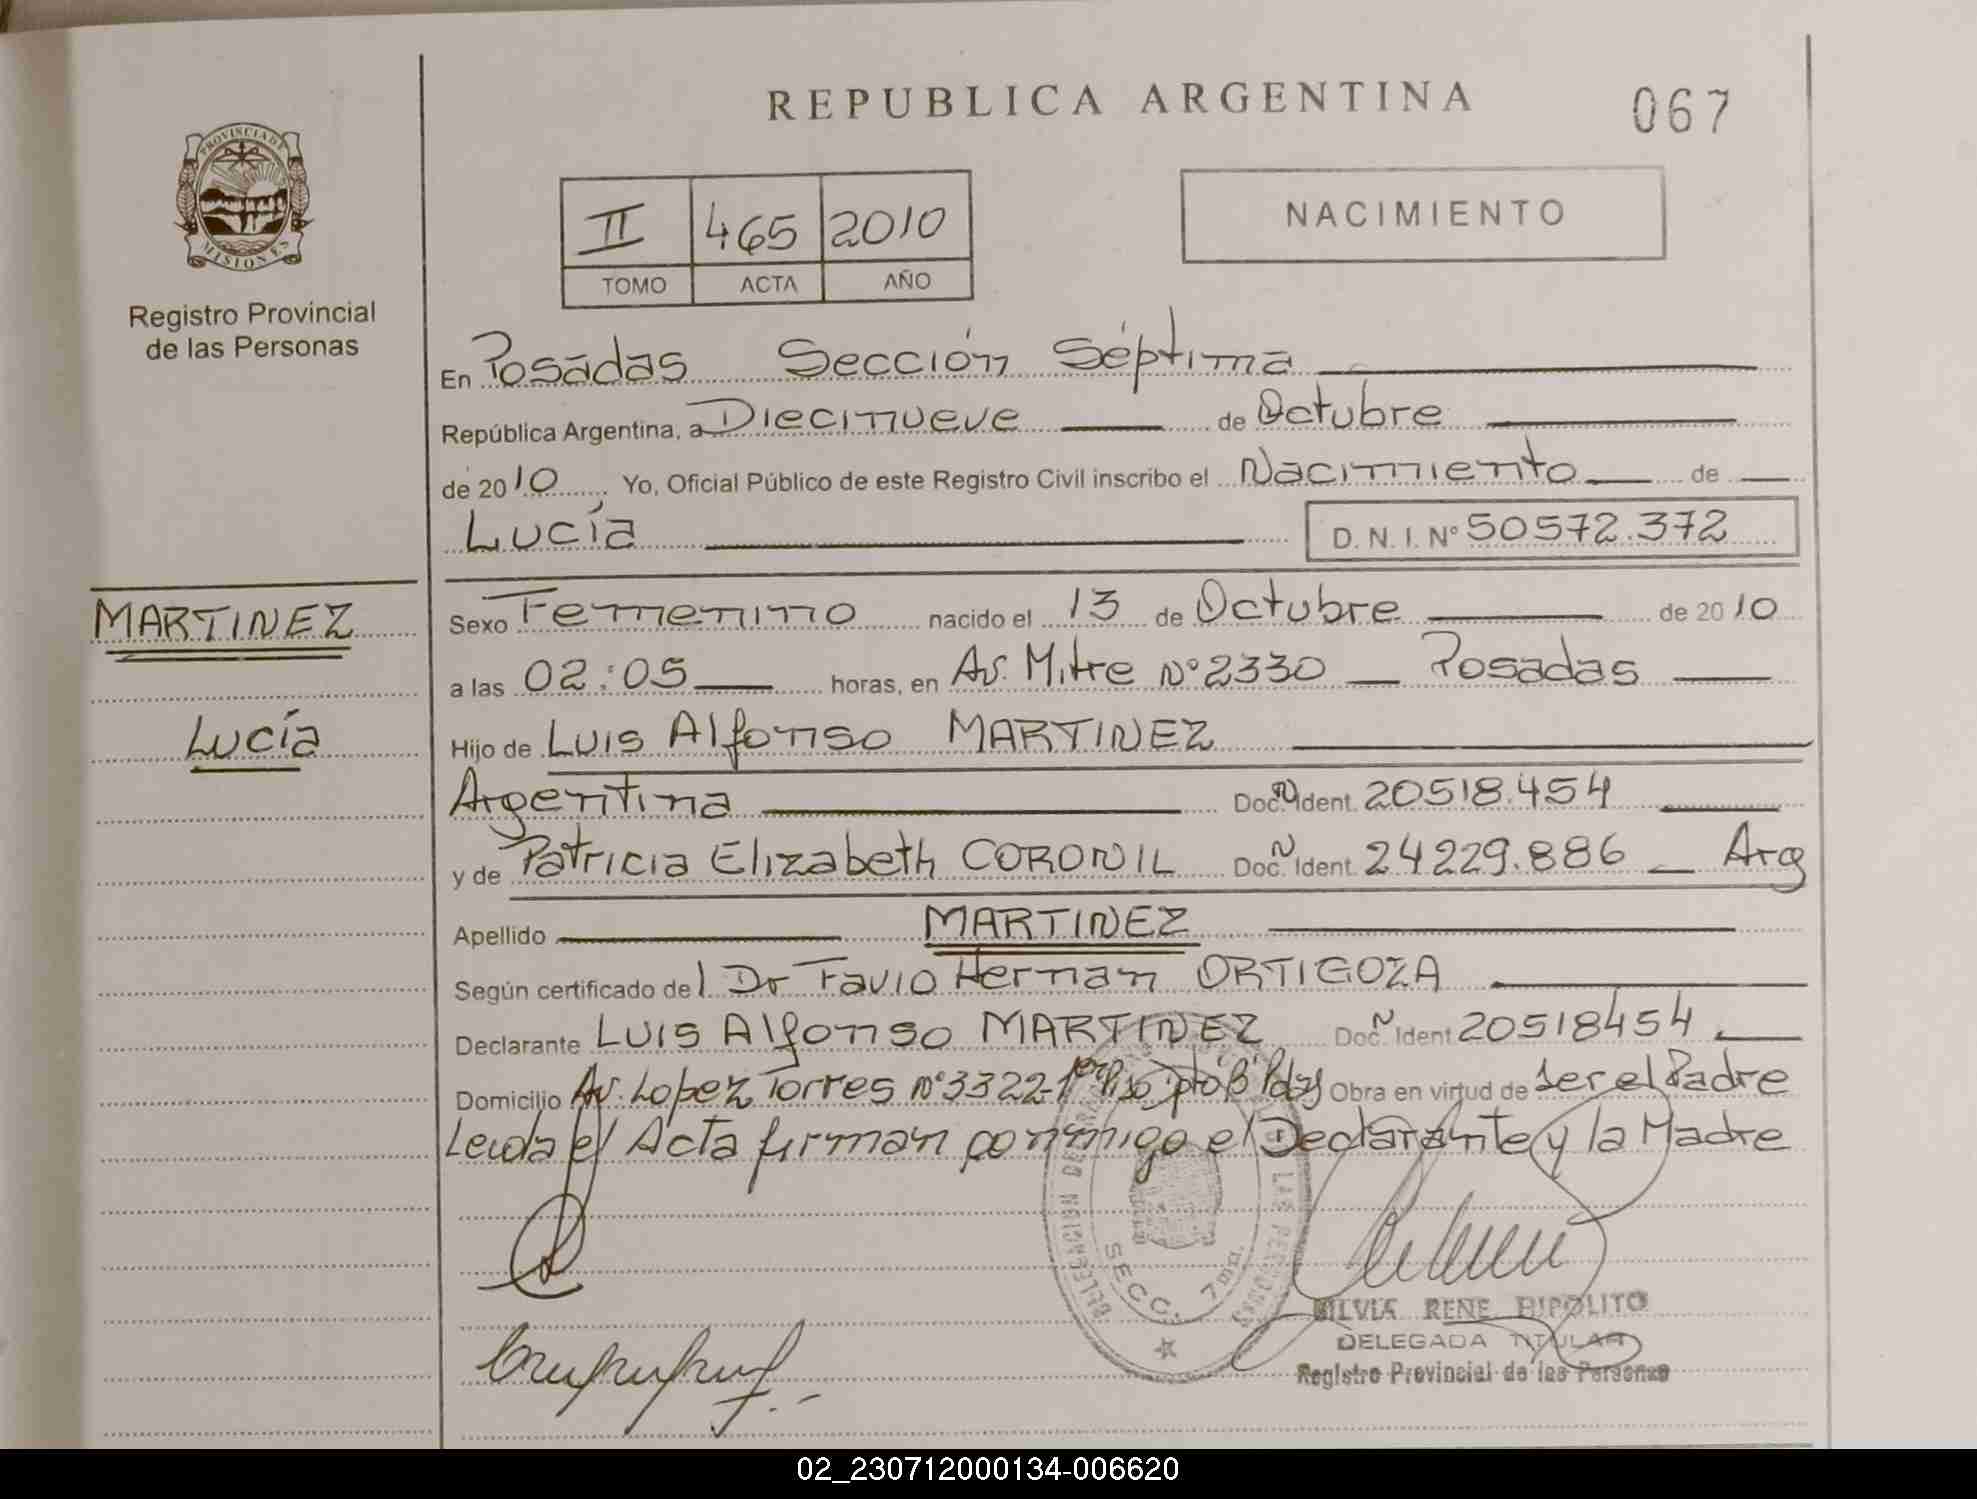 REPUBLICA ARGENTINA
067
PROVINCIA DE
MISIONES
Registro Provincial
de las Personas
II 465 2010
TOMO ACTA AÑO
NACIMIENTO
En Posadas Sección Séptima
República Argentina, a Diecinueve de Octubre
de 2010 Yo, Oficial Público de este Registro Civil inscribo el Nacimiento de
Lucía D. N. I. N° 50572.372
MARTINEZ
Lucía
Sexo Femenino nacido el 13 de Octubre de 2010
a las 02:05 horas, en Av. Mitre N° 2330 Posadas
Hijo de Luis Alfonso MARTINEZ
Argentina Doc. N Ident. 20518.454
y de Patricia Elizabeth CORONIL Doc. N Ident. 24229.886 Arg
Apellido MARTINEZ
Según certificado del Dr Favio Hernan ORTIGOZA
Declarante Luis Alfonso MARTINEZ Doc. N Ident 20518454
Domicilio Av. Lopez Torres N° 3322-1er Piso Dpto B Pdas Obra en virtud de ser el Padre
Leida el Acta firman conmigo el Declarante y la Madre
DELEGACION DE LAS PERSONAS
SECC. 7ma.
SILVIA RENE HIPOLITO
DELEGADA TITULAR
Registro Provincial de las Personas
02_230712000134-006620